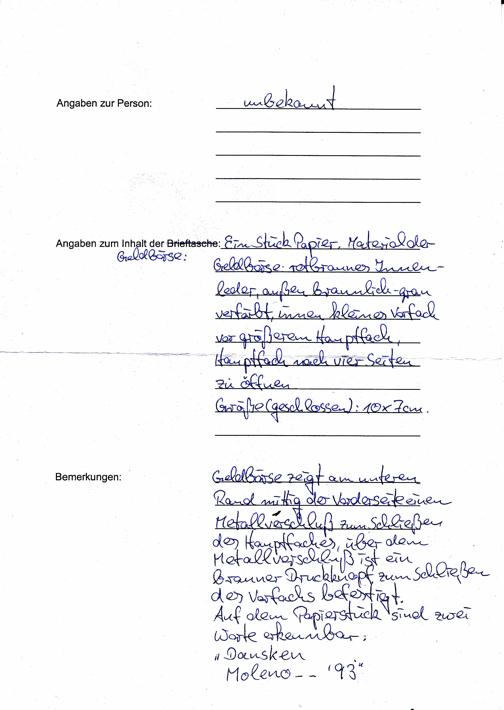 Angaben zur Person: unbekannt
Angaben zum Inhalt der Brieftasche: Ein Stück Papier, Material der
Geldbörse:
Geldbörse: rotbraunes Innen-
leder, außen bräunlich-grau
verfärbt, innen kleines Vorfach
vor größerem Hauptfach,
Hauptfach nach vier Seiten
zu öffnen
Größe (geschlossen): 10x7cm.
Bemerkungen: Geldbörse zeigt am unteren
Rand mittig der Vorderseite einen
Metallverschluß zum Schließen
des Hauptfaches, über dem
Metallverschluß ist ein
brauner Druckknopf zum Schließen
des Vorfachs befestigt.
Auf dem Papierstück sind zwei
Worte erkennbar:
„Dansken
Moleno-- '93"